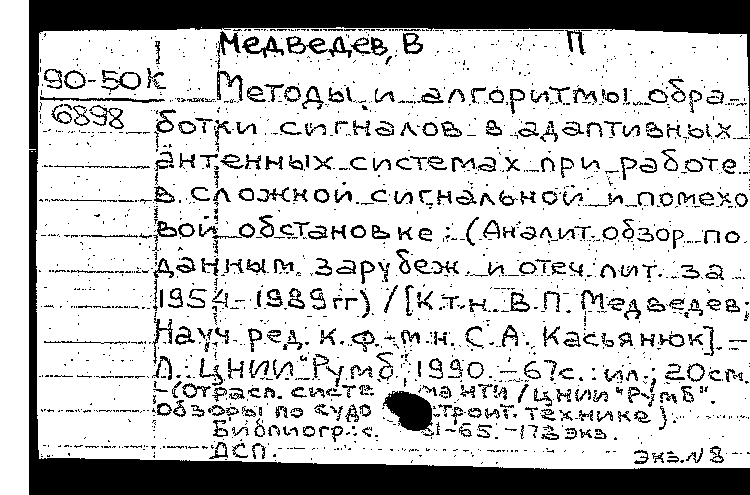 Медведев, В П
90-50К
6898
Методы и алгоритмы обра-
ботки сигналов в адаптивных
антенных системах при работе
в сложной сигнальной и помехо
вой обстановке: (Аналит. обзор по
данным зарубеж. и отеч. лит. за
1954-1989 гг) / [К.т.н. В.П. Медведев,
Науч. ред. к.ф.-м.н. С.А. Касьянюк]. –
Л.: ЦНИИ "Румб", 1990. – 67с.: ил.; 20см.
– (Отрасл. систе ма НТИ / ЦНИИ "Румб".
Обзоры по судо строит. технике).
Библиогр.: с. 61-65. – 173 экз.
ДСП.
Экз. N 8